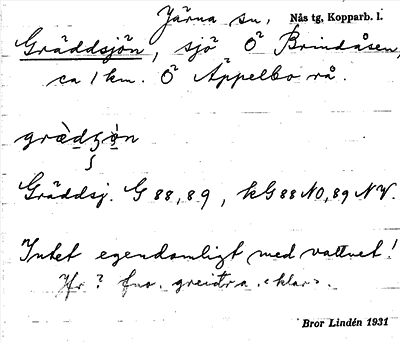 Järna sn, Nås tg, Kopparb. l.
Gräddsjön, sjö Ö Brindåsen,
ca 1 km. Ö Äppelbo rå.
Gräddsj. G 88, 89, kG 88 NO, 89 NV.
Intet egendomligt med vattnet!
Jfr ? fno. greiðra «klar».
Bror Lindén 1931